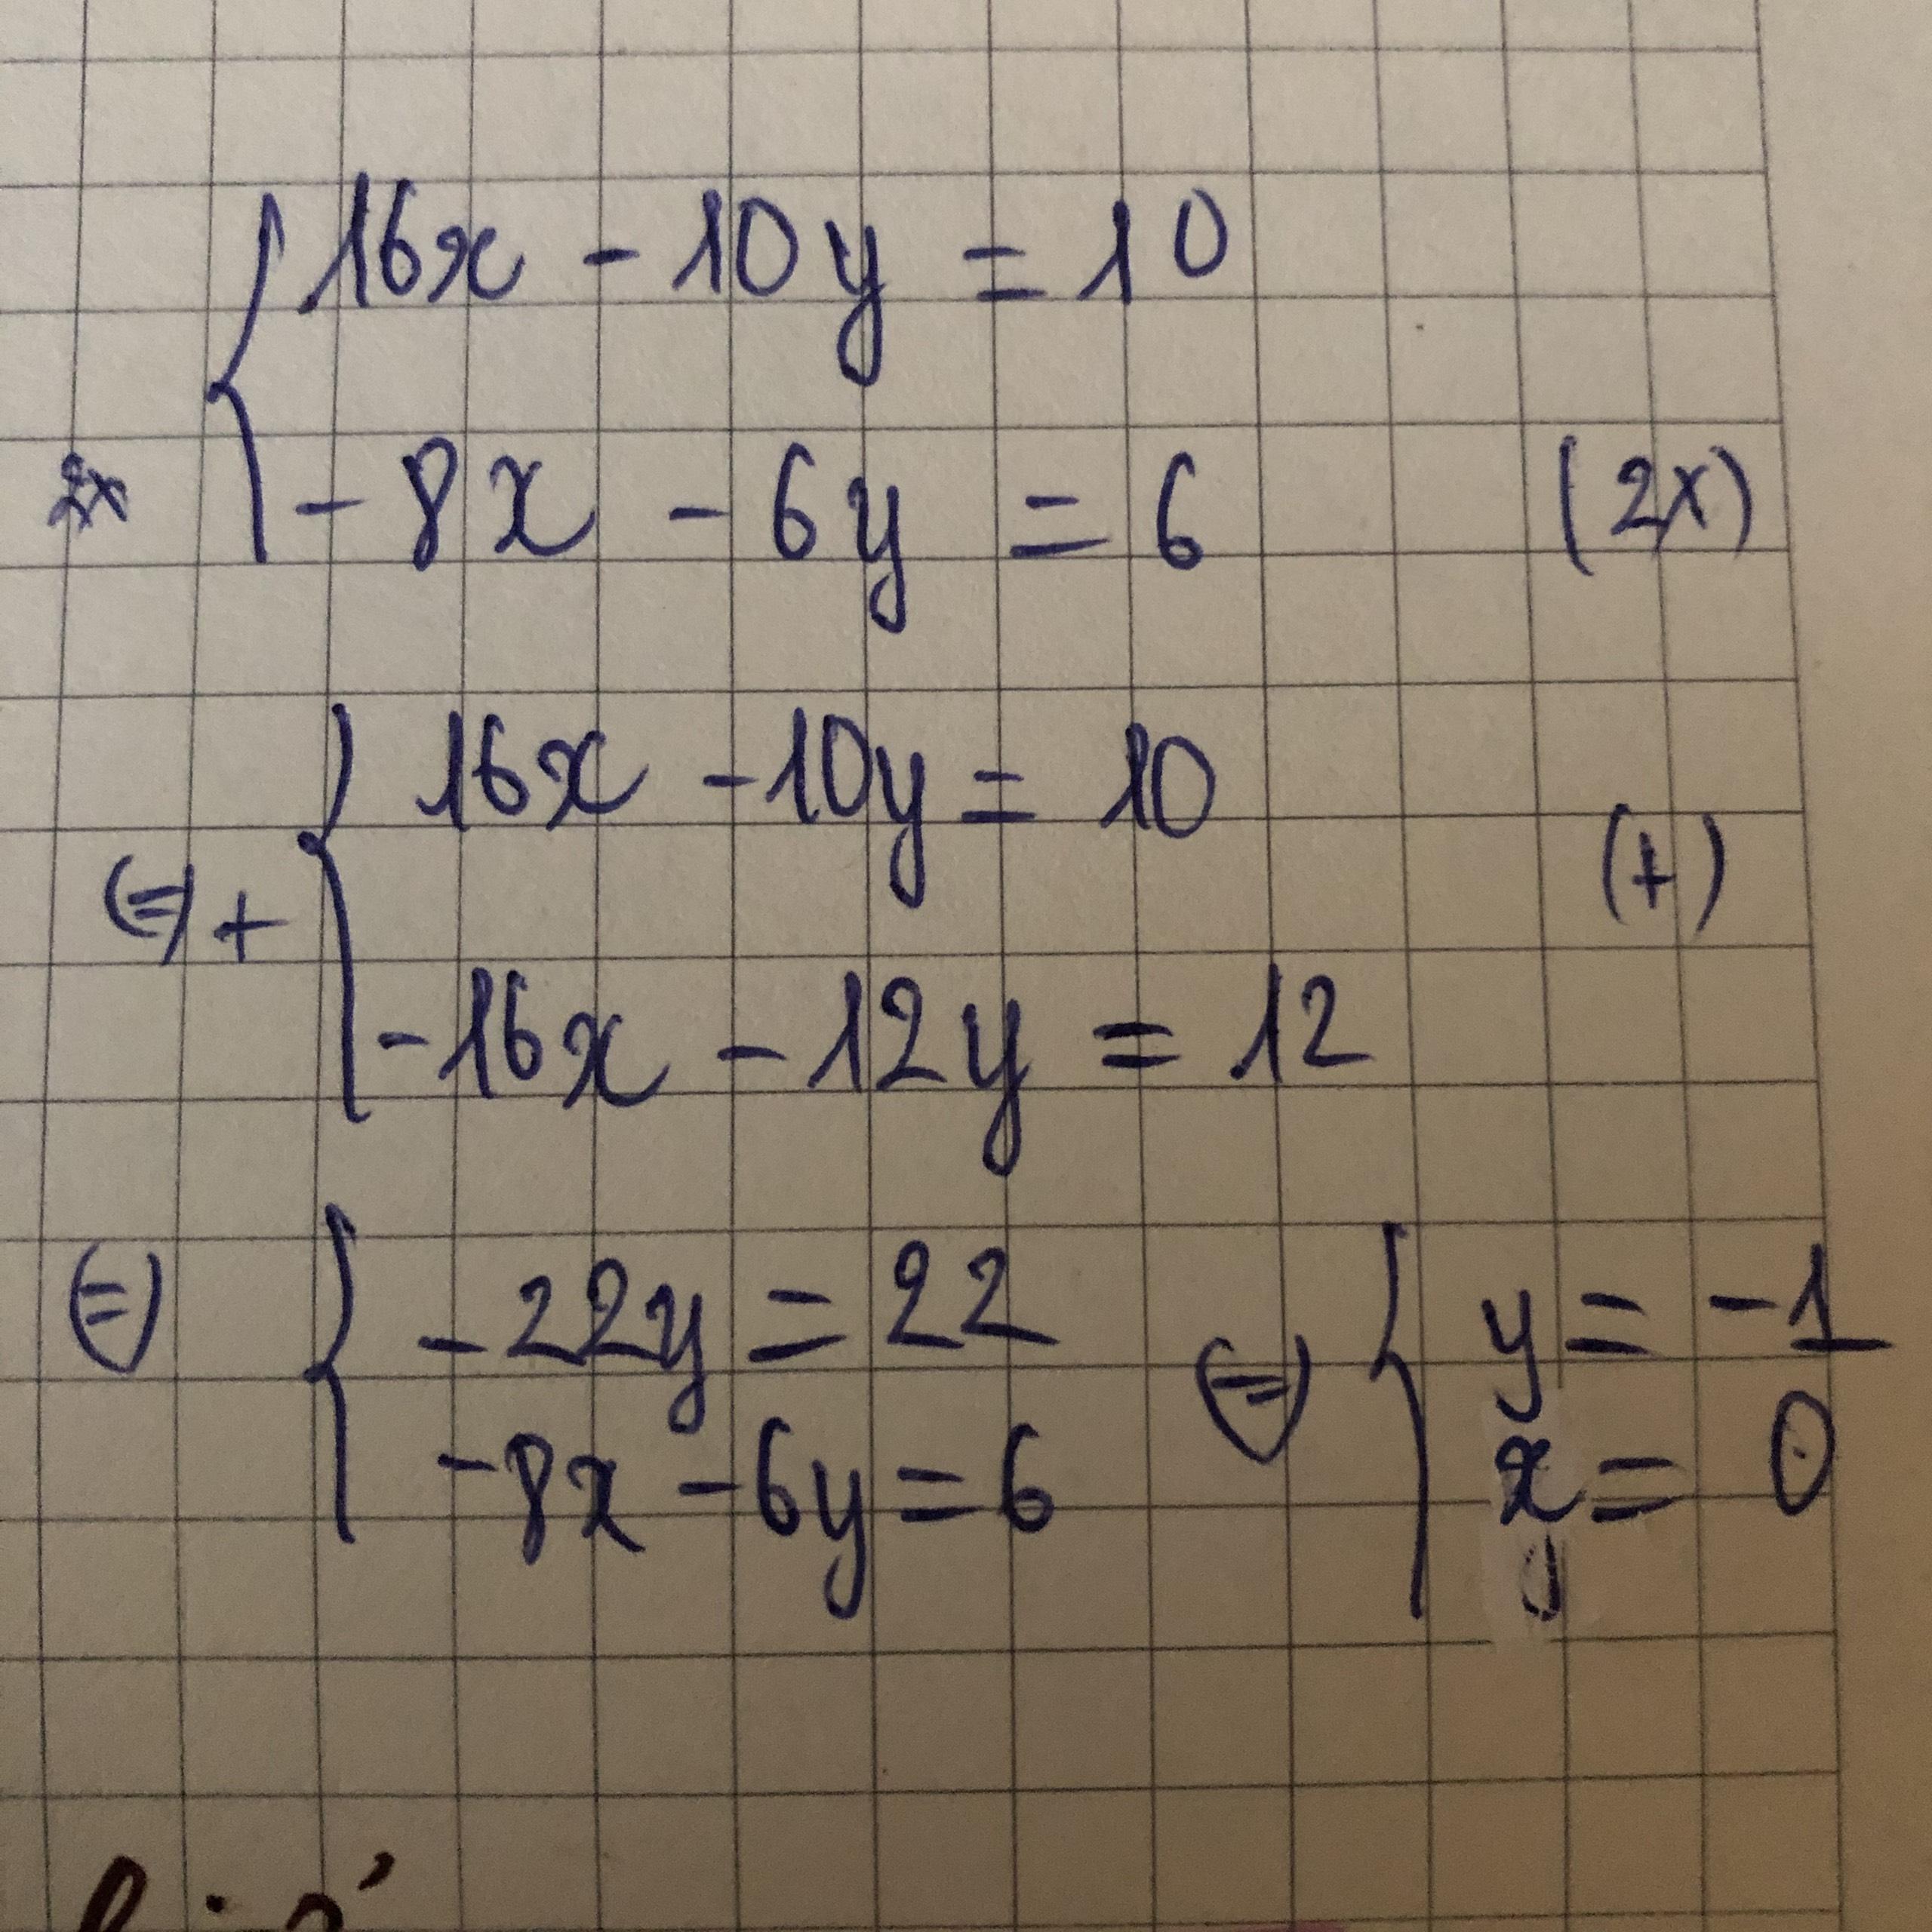 16x - 10y = 10
2x - 8x - 6y = 6 (2x)
16x - 10y = 10
(=) + (+)
-16x - 12y = 12
(=) -22y = 22 (=) y = -1
-8x - 6y = 6 x = 0